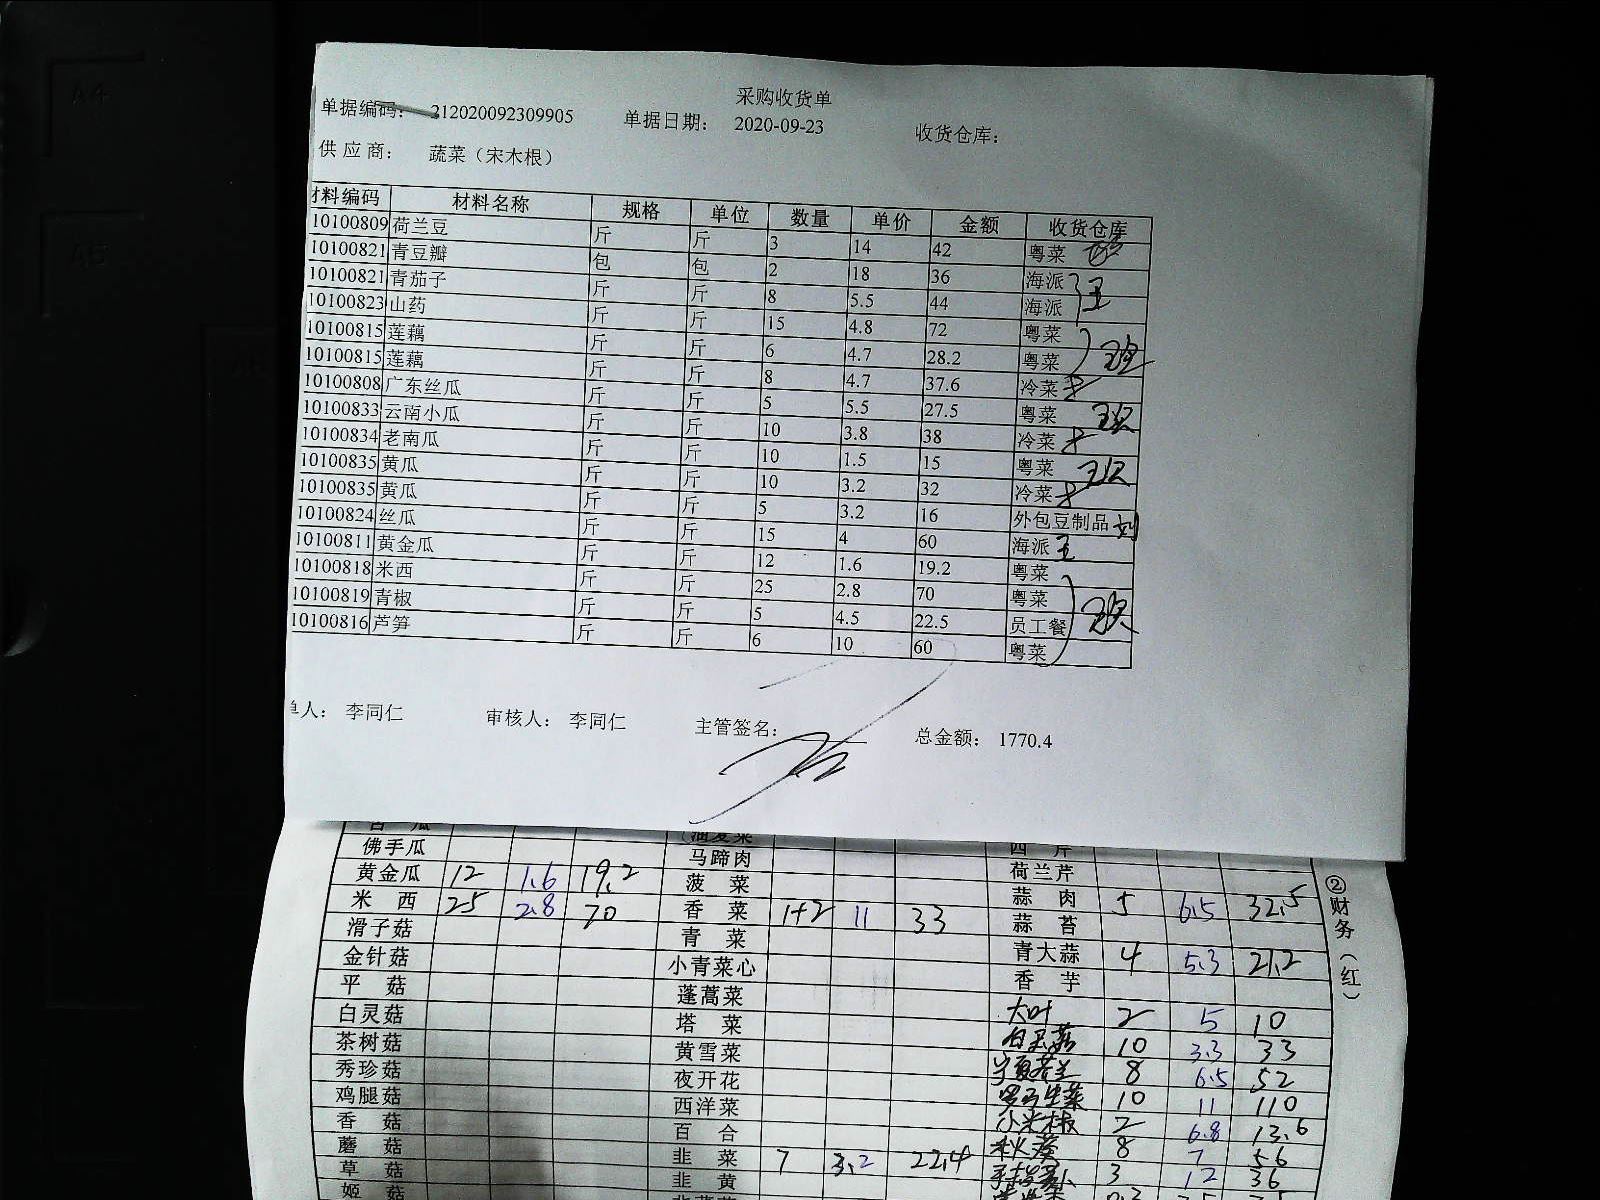 采购收货单
单据编码： 212020092309905 单据日期： 2020-09-23 收货仓库：
供 应 商： 蔬菜（宋木根）
材料编码 材料名称 规格 单位 数量 单价 金额 收货仓库
10100809 荷兰豆 斤 斤 3 14 42 粤菜
10100821 青豆瓣 包 包 2 18 36 海派
10100821 青茄子 斤 斤 8 5.5 44 海派 王
10100823 山药 斤 斤 15 4.8 72 粤菜
10100815 莲藕 斤 斤 6 4.7 28.2 粤菜
10100815 莲藕 斤 斤 8 4.7 37.6 冷菜
10100808 广东丝瓜 斤 斤 5 5.5 27.5 粤菜
10100833 云南小瓜 斤 斤 10 3.8 38 冷菜
10100834 老南瓜 斤 斤 10 1.5 15 粤菜
10100835 黄瓜 斤 斤 10 3.2 32 冷菜
10100835 黄瓜 斤 斤 5 3.2 16 外包豆制品 刘
10100824 丝瓜 斤 斤 15 4 60 海派 王
10100811 黄金瓜 斤 斤 12 1.6 19.2 粤菜
10100818 米西 斤 斤 25 2.8 70 粤菜
10100819 青椒 斤 斤 5 4.5 22.5 员工餐
10100816 芦笋 斤 斤 6 10 60 粤菜
单人： 李同仁 审核人： 李同仁 主管签名： 总金额： 1770.4
佛手瓜 马蹄肉 荷兰芹
黄金瓜 12 1.6 19.2 菠 菜 蒜 肉 5 6.5 32.5
米 西 25 2.8 70 香 菜 1+2 11 33 蒜 苔
滑子菇 青 菜 青大蒜 4 5.3 21.2
金针菇 小青菜心 香 芋
平 菇 蓬蒿菜 大叶 2 5 10
白灵菇 塔 菜 白灵菇 10 3.3 33
茶树菇 黄雪菜 8 6.5 52
秀珍菇 夜开花 罗马生菜 10 11 110
鸡腿菇 西洋菜 小米椒 2 6.8 13.6
香 菇 百 合 秋葵 8 7 56
蘑 菇 韭 菜 7 3.2 22.4 3 12 36
草 菇 韭 黄
姬 菇
②财务（红）